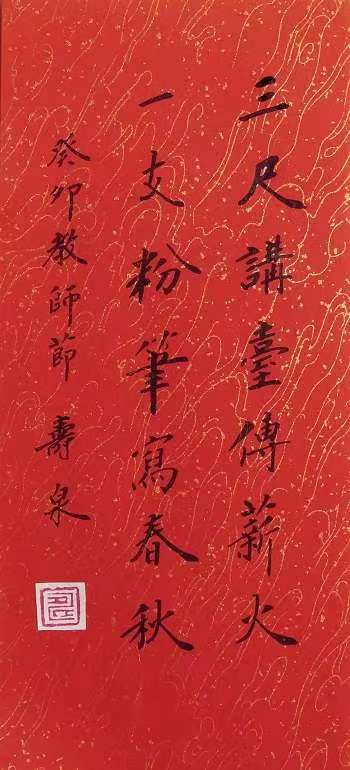 三尺講臺傳薪火
一支粉筆寫春秋
癸卯教師節 壽泉